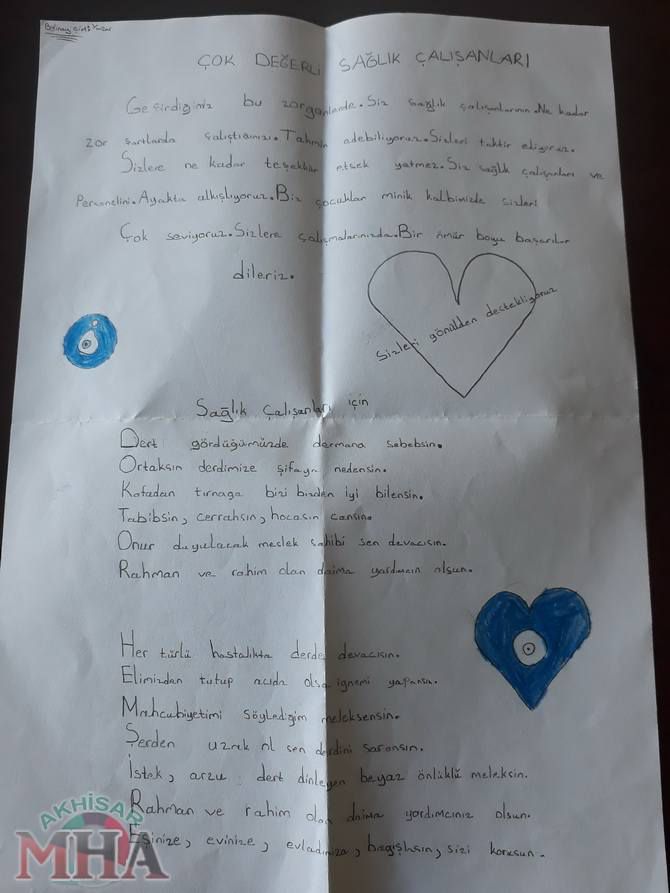 ÇOK DEĞERLİ SAĞLIK ÇALIŞANLARI
Geçirdiğimiz bu zorganlarda. Siz sağlık çalışanlarının. Ne kadar
zor şartlarda çalıştığınızı. Tahmin edebiliyoruz. Sizleri taktir ediyoruz.
Sizlere ne kadar teşekkür etsek yetmez. Siz sağlık çalışanları ve
Personelini. Ayakta alkışlıyoruz. Biz çocuklar minik kalbimizde sizleri
Çok seviyoruz. Sizlere çalışmalarınızda. Bir ömür boyu başarılar
dileriz.
Sizleri gönülden destekliyoruz
Sağlık Çalışanları için
Dert gördüğümüzde dermana sebebsin.
Ortaksın derdimize şifaya nedensin.
Kafadan tırnaga bizi bizden iyi bilensin.
Tabibsin, cerrahsın, hocasın cansın.
Onur duyulacak meslek sahibi sen devacısın.
Rahman ve rahim olan daima yardımcın olsun.
Her türlü hastalıkta derde devacısın.
Elimizden tutup acıda olsa ignemi yapansın.
Mahcubiyetimi söylediğim meleksensin.
Şerden uzak ol sen derdini saransın.
İstek, arzu dert dinleyen beyaz önlüklü meleksin.
Rahman ve rahim olan daima yardımcınız olsun.
Eşinize, evinize, evladınıza, bagışlasın, sizi korusun.
AKHİSAR
MHA